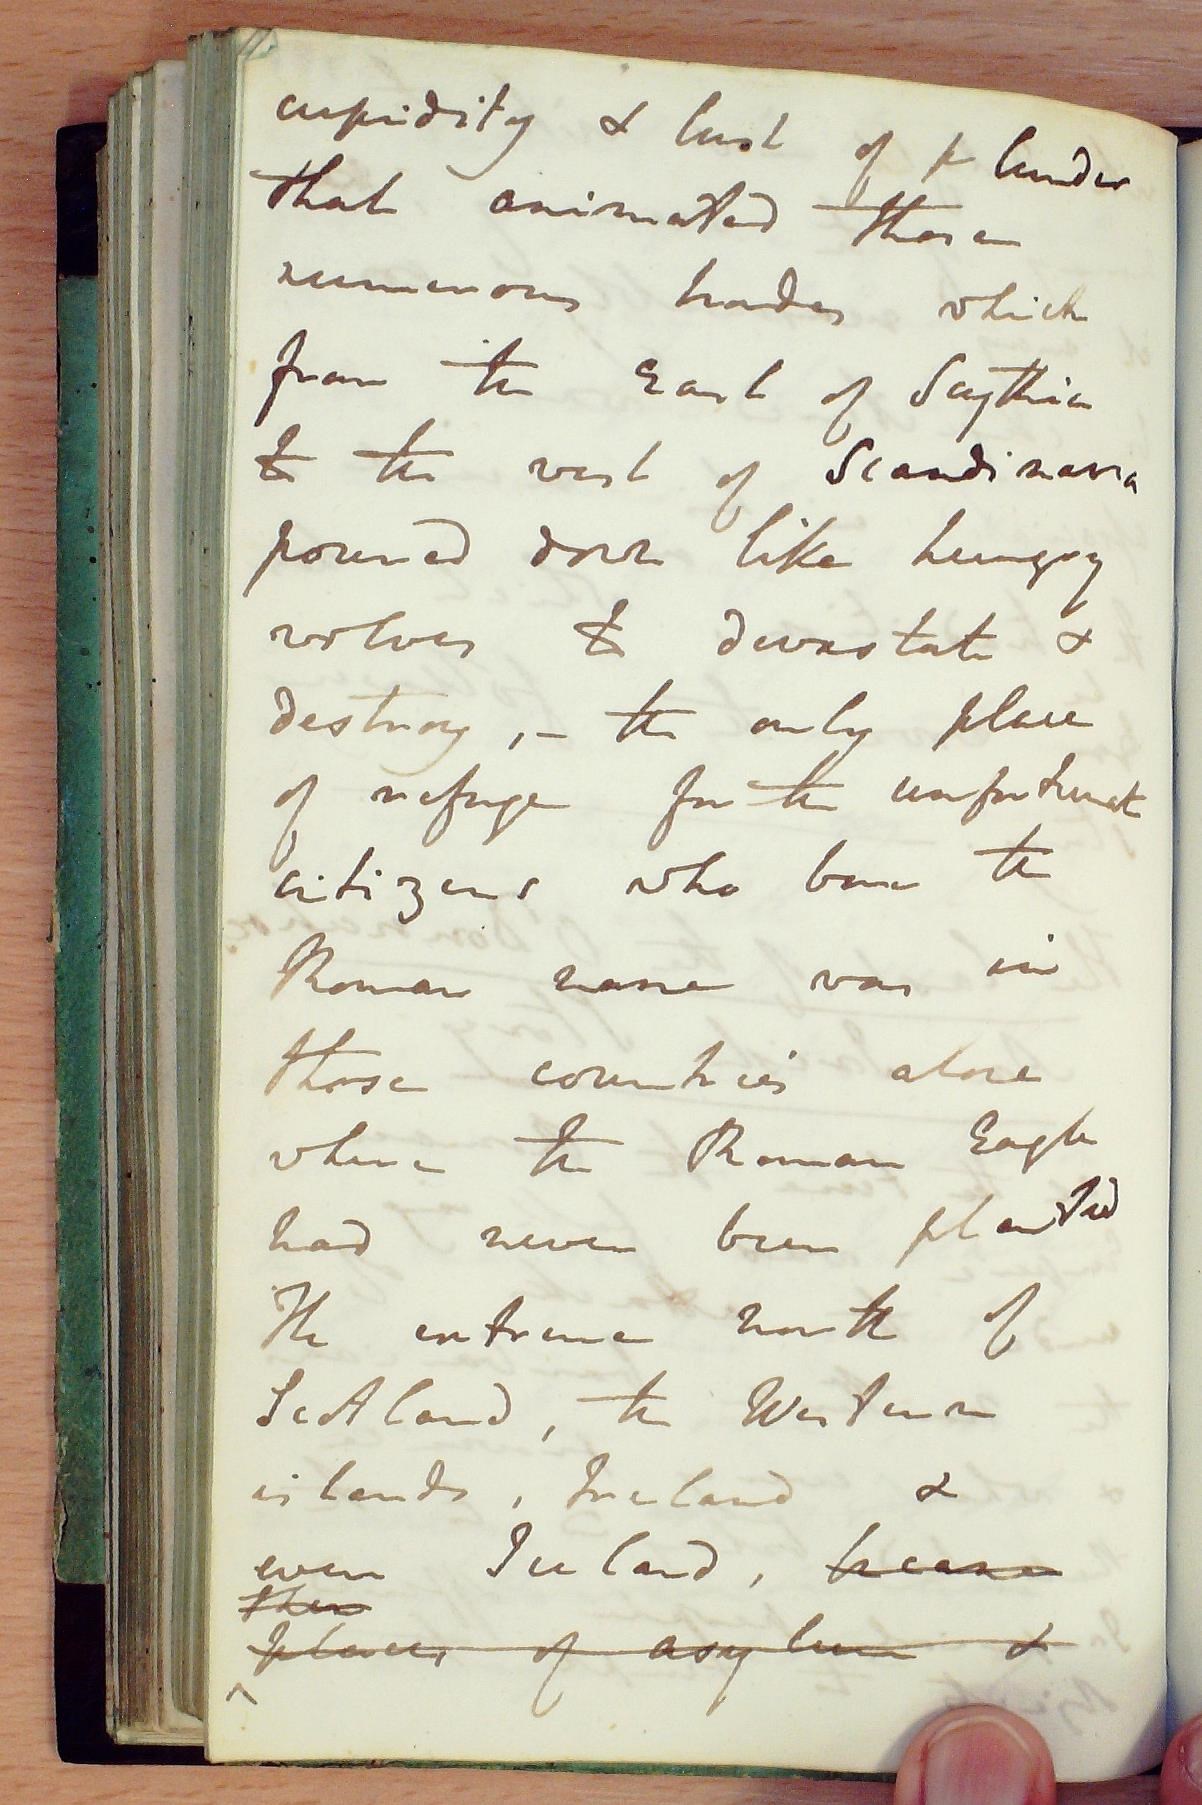 cupidity & lust of plunder
that animated those
numerous hordes which
from the East of Scythia
to the west of Scandinavia
poured down like hungry
wolves to devastate &
destroy, – the only place
of refuge for the unfortunate
citizens who bore the
Roman name was in
those countries alone
where the Roman Eagle
had never been planted
The extreme north of
Scotland, the Western
islands, Ireland &
even Iceland, became
then
places of asylum &
^